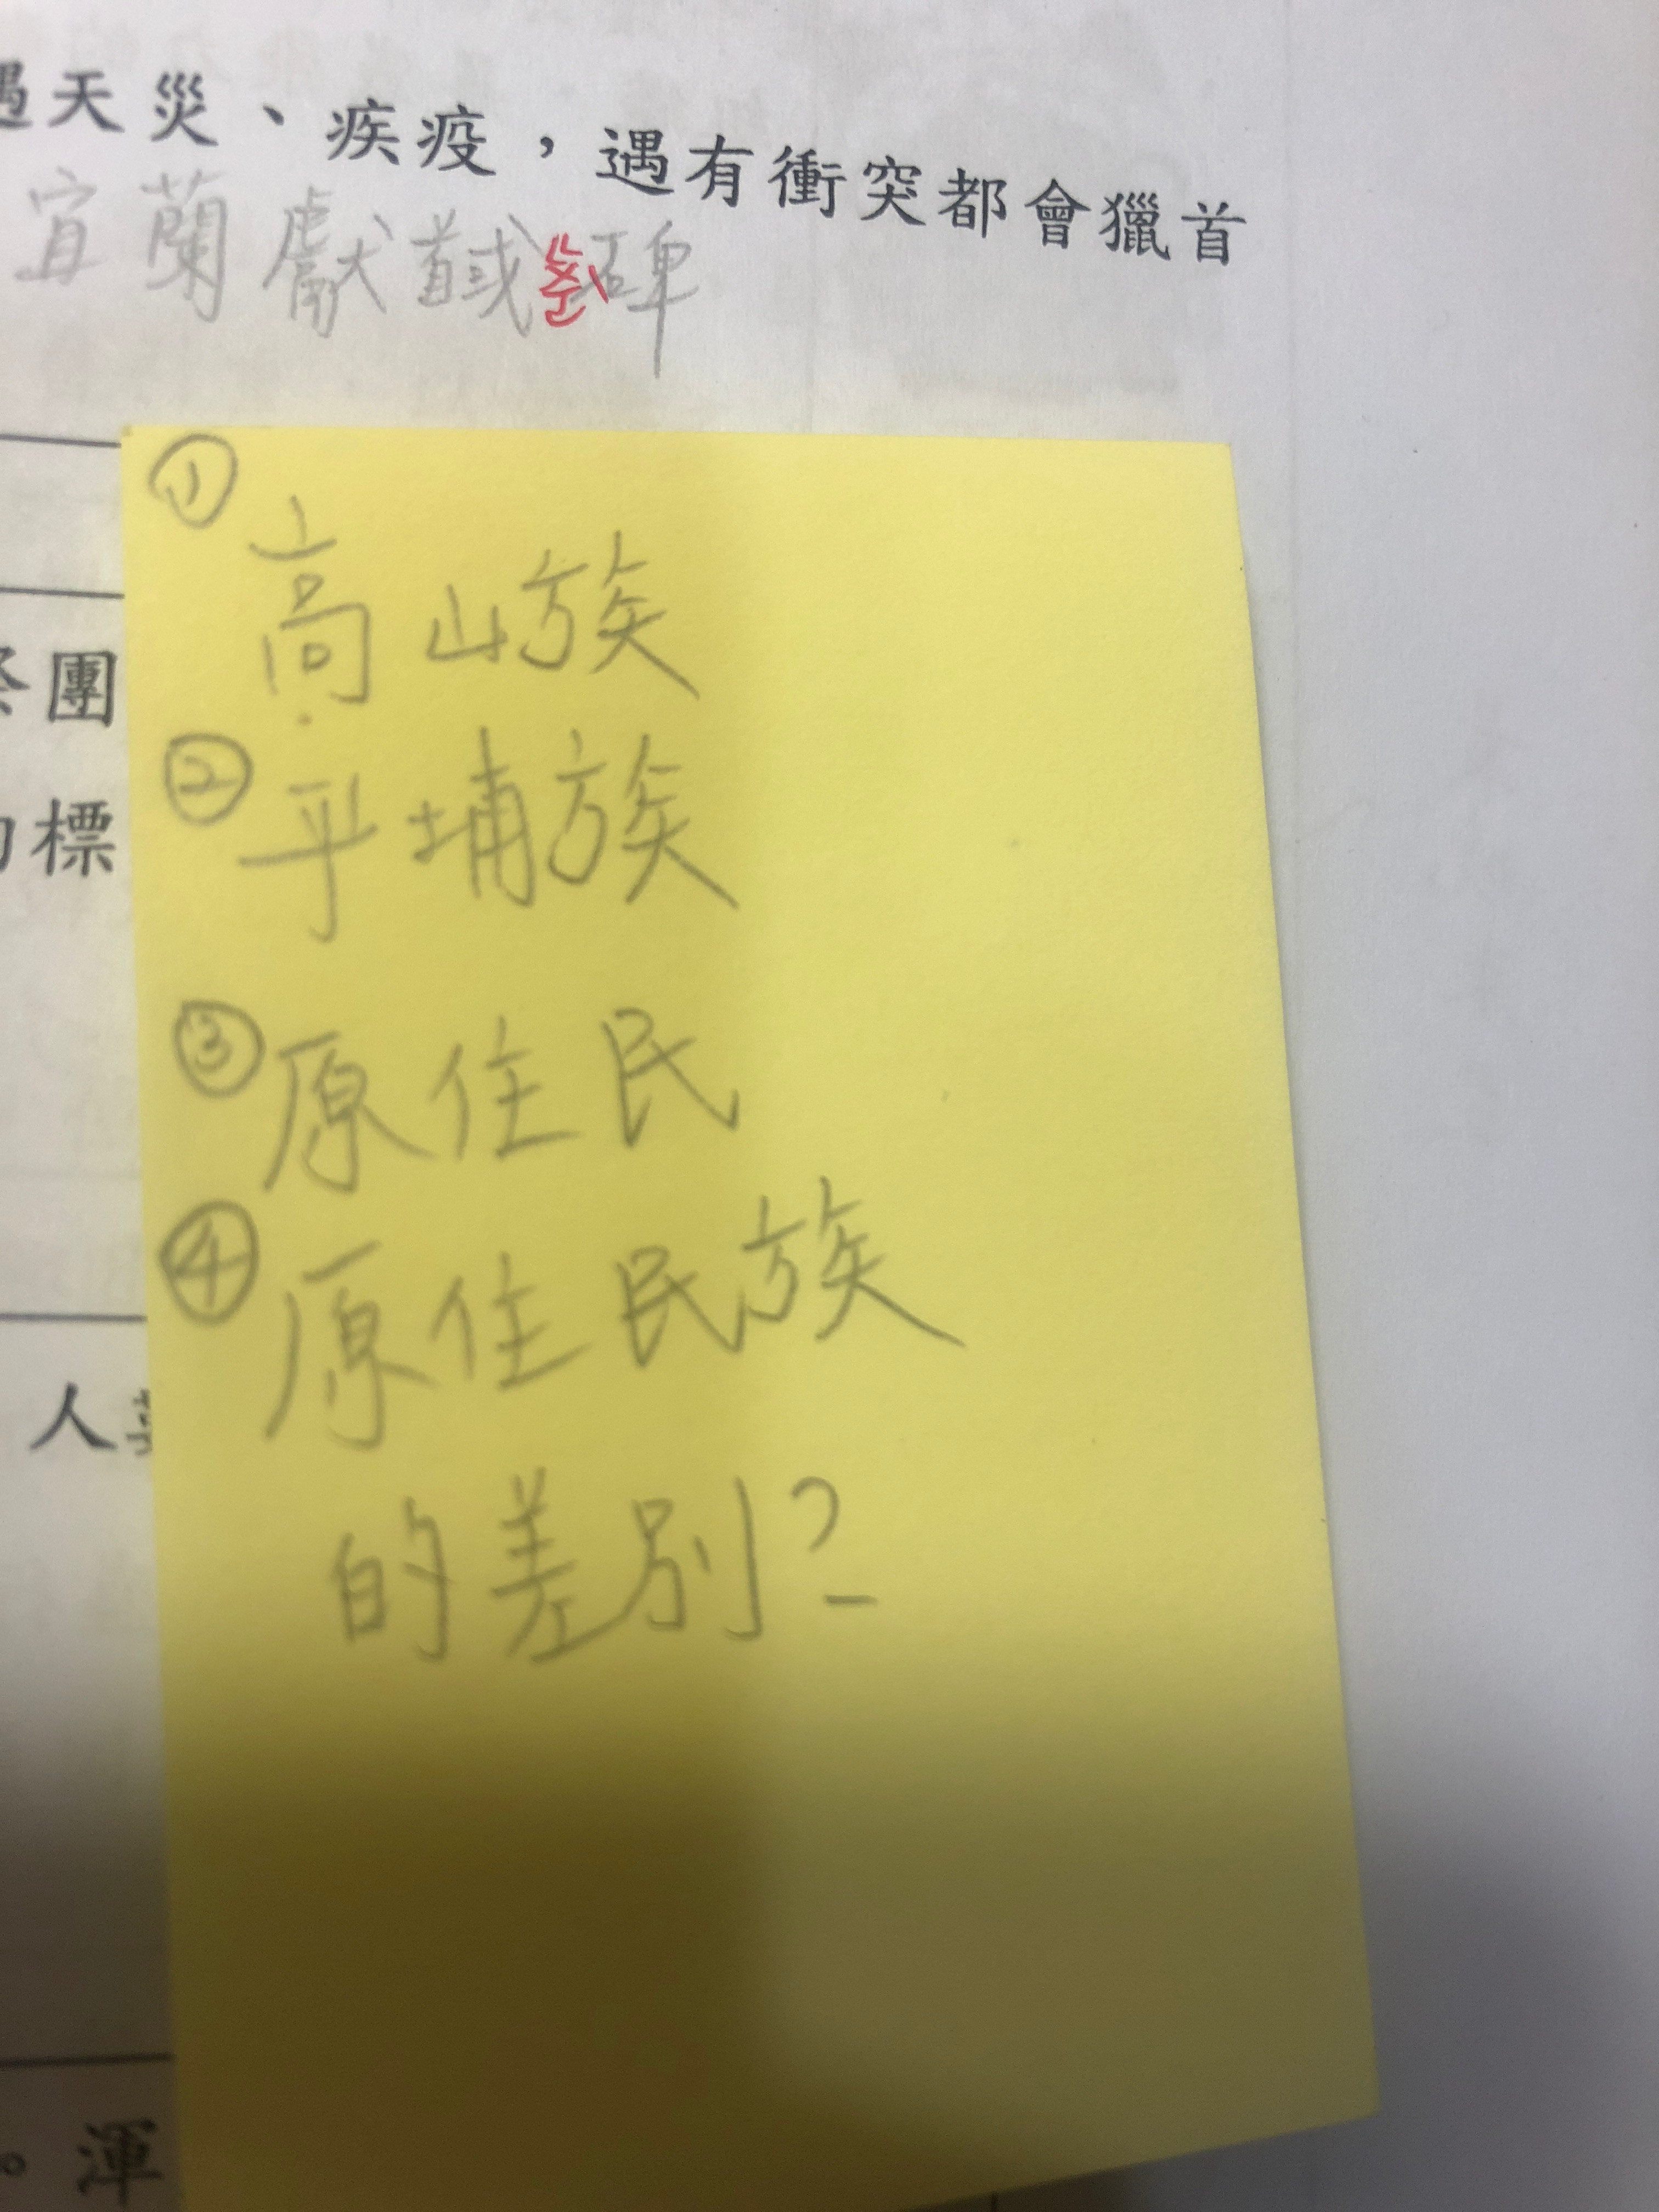 遇天災、疾疫，遇有衝突都會獵首
宜蘭獻馘碑
①
高山族
②
平埔族
團
標
③原住民
④原住民族
人
的差別？
。渾